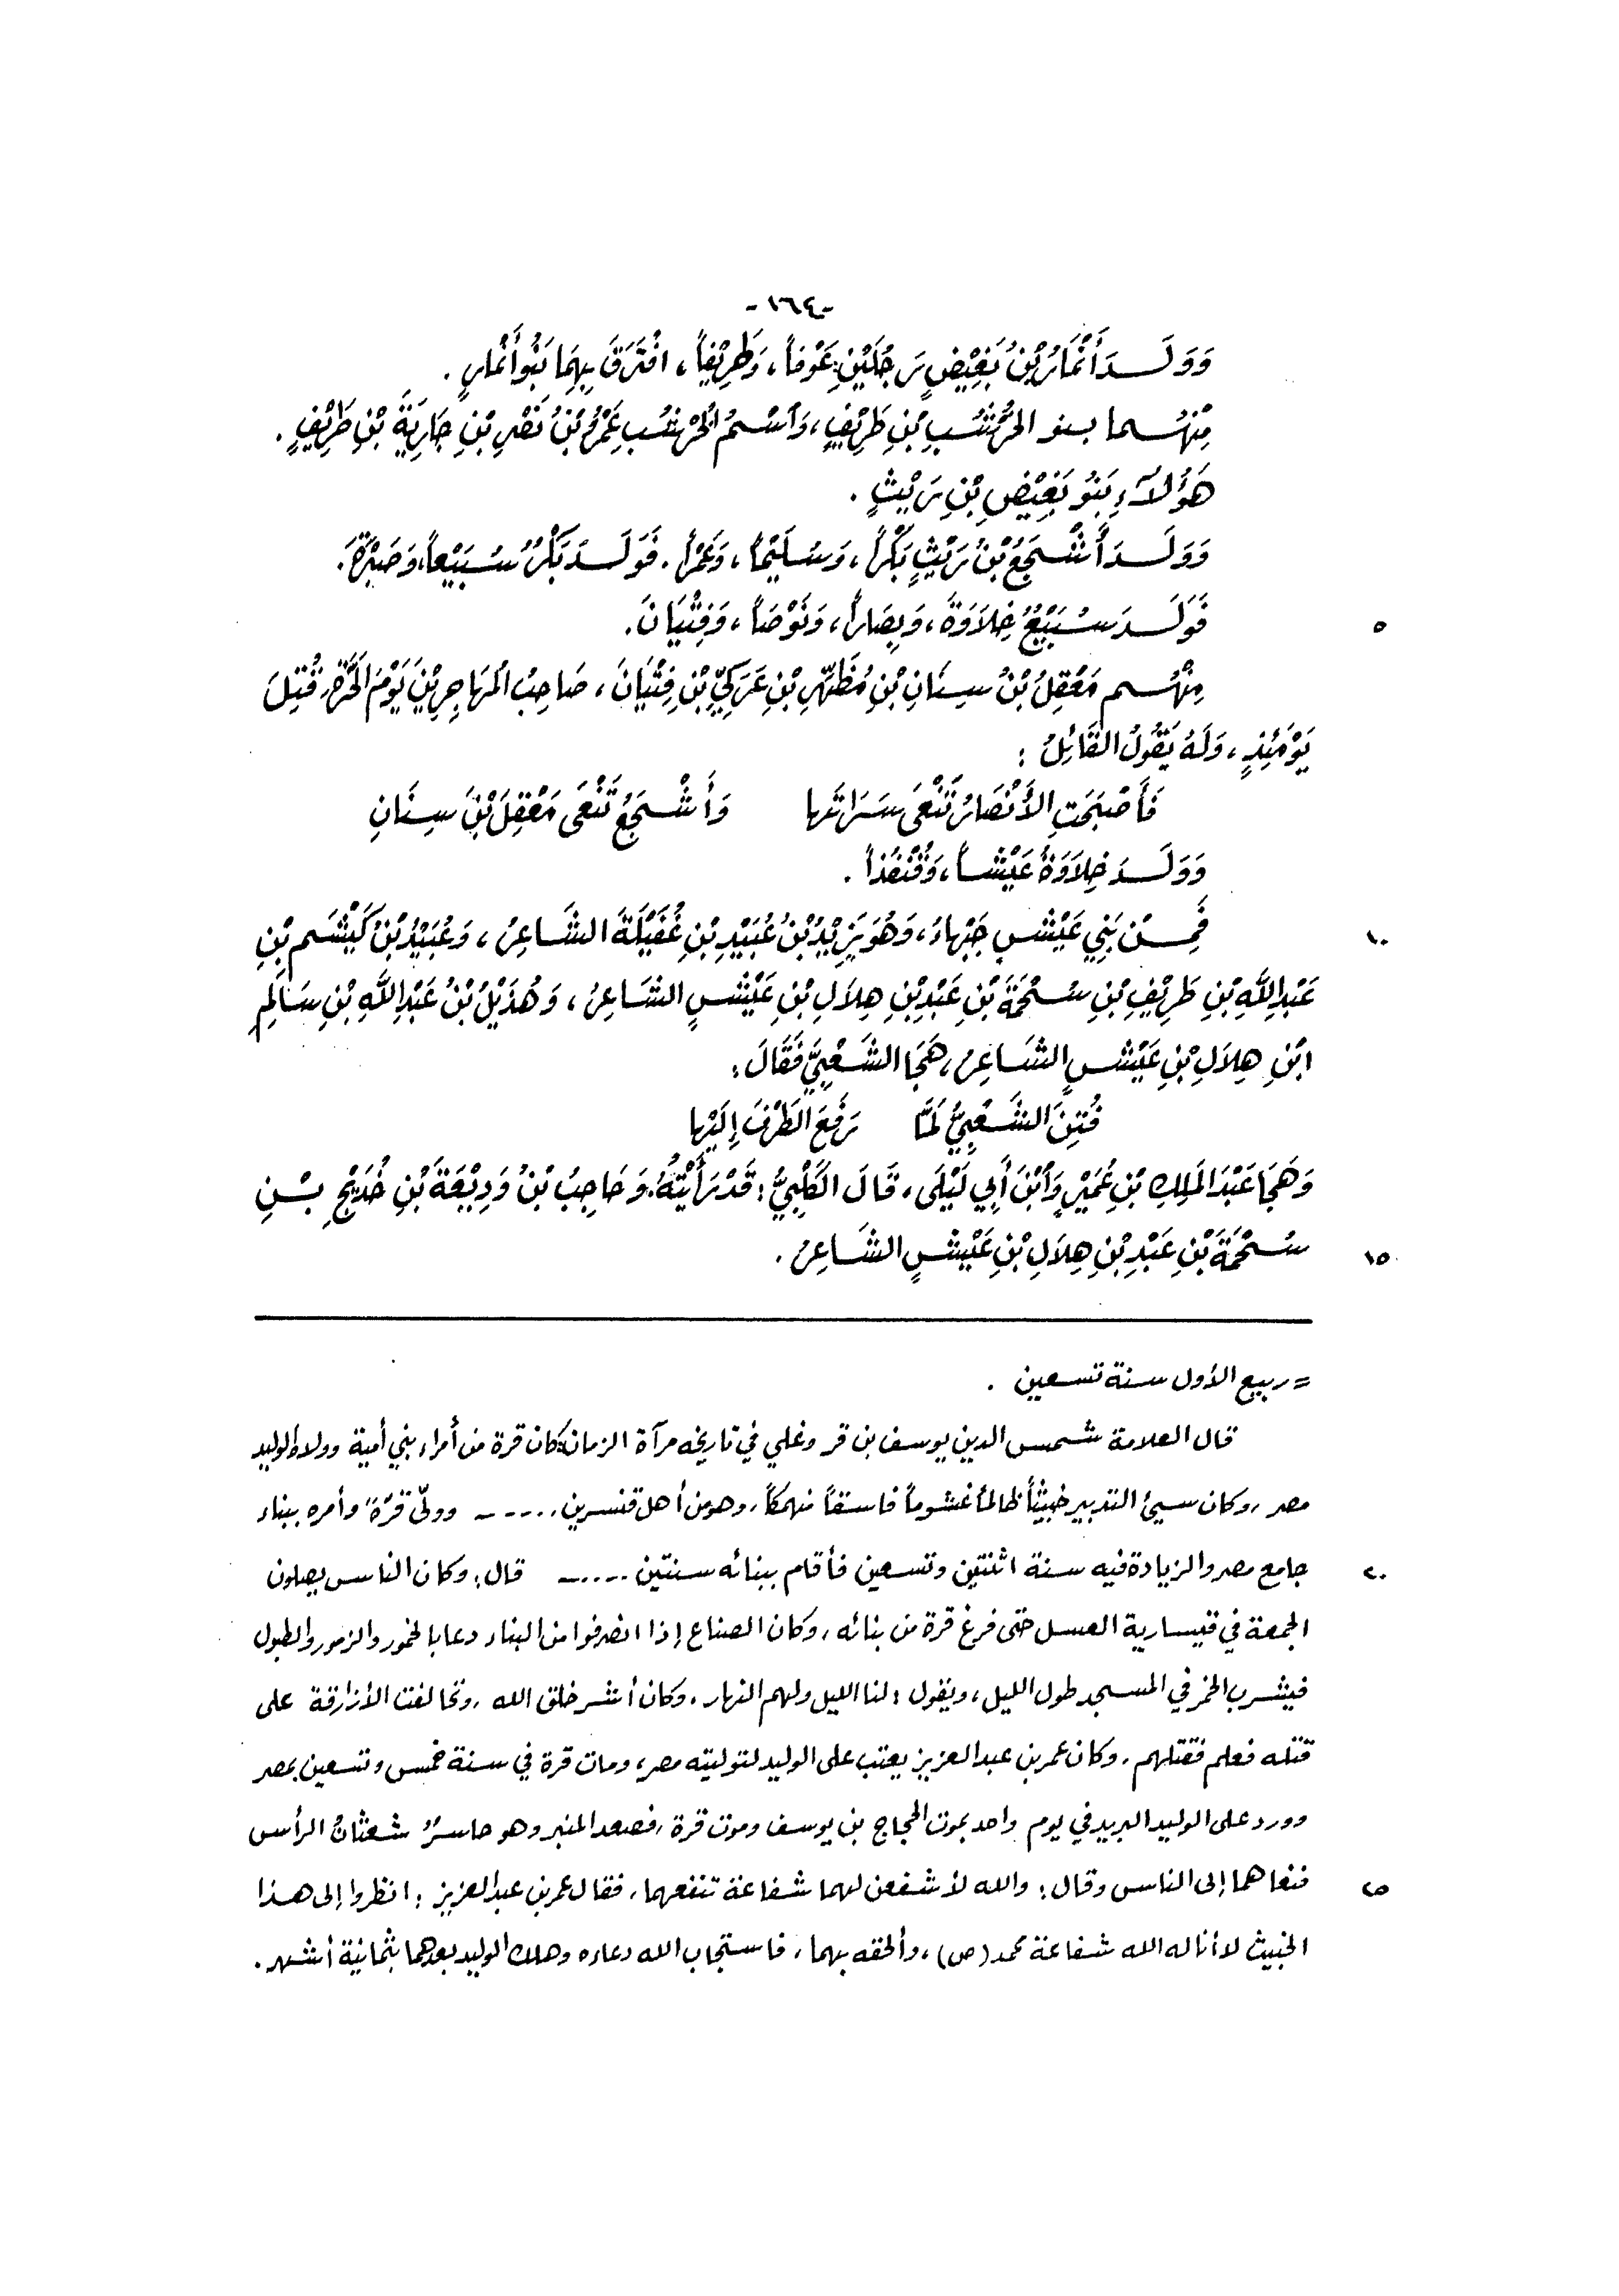 -١٦٤-
وَوَلَــدَ أَنْمَارُ بْنُ بَغِيْضٍ رَجُلَيْنِ: عَوْفاً، وَطَرِيْفاً، افْتَرَقَ بِهِمَا بَنُو أَنْمَارٍ .
مِنْهُــما بــنو الخُرْشُبِ بْنِ طَرِيْفٍ، وَاسْمُ الخُرْشُبِ عَمْرُو بْنُ نَصْرِ بْنِ جَارِيَةَ بْنِ طَرِيْفٍ .
هَؤُلآءِ بَنُو بَغِيْضِ بْنِ رَيْثٍ .
وَوَلَــدَ أَشْــجَعُ بْنُ رَيْثٍ بَكْراً، وَسُلَيْماً، وَعَمْراً. فَوَلَــدَ بَكْرٌ سُبَيْعاً، وَصَبْرَةَ.
٥ فَوَلَــدَ سُبَيْعٌ خِلاَوَةَ، وَبِصَاراً، وَنَوْصَاً، وَفِتْيَانَ.
مِنْهُــم مَعْقِلُ بْنُ سِنَانِ بْنِ مُظَهِّرِ بْنِ عَرَكِيِّ بْنِ فِتْيَانَ، صَاحِبُ المُهَاجِرِيْنَ يَوْمَ الحَرَّةِ، قُتِلَ
يَوْمَئِذٍ، وَلَهُ يَقُولُ القَائِلُ :
فَأَصْبَحَتِ الأَنْصَارُ تَنْعَى سَرَاتَها وَأَشْــجَعُ تَنْعَى مَعْقِلَ بْنَ سِنَانِ
وَوَلَــدَ خِلاَوَةُ عَيْشــاً، وَقُنْفُذاً .
١٠ فَمِــنْ بَنِي عَيْشٍ جَبْهاءُ، وَهُوَ يَزِيْدُ بْنُ عُبَيْدِ بْنِ غُفَيْلَةَ الشَاعِرُ، وَعُبَيْدُ بْنُ كَيْشَم بْنِ
عَبْدِ اللّهِ بْنِ طَرِيْفِ بْنِ سُحْمَةَ بْنِ عَبْدِ بْنِ هِلاَلِ بْنِ عَيْشٍ الشَاعِرُ، وَهُذَيْلُ بْنُ عَبْدِ اللّهِ بْنِ سَالِمِ
ابْنِ هِلاَلِ بْنِ عَيْشٍ الشَاعِرُ، هَجَا الشَــعْبِيَّ فَقَالَ:
فُتِنَ الشَــعْبِيُّ لَمَّا رَفَعَ الطَرْفَ إِلَيْها
وَهَجَا عَبْدَ المَلِكِ بْنِ عُمَيْرٍ وَابْنَ أَبِي لَيْلَى، قَالَ الكَلْبِيُّ: قَدْ رَأَيْتُهُ. وَحَاجِبُ بْنُ وَدِيْعَةَ بْنِ خُدَيْجِ بْــنِ
١٥ سُحْمَةَ بْنِ عَبْدِ بْنِ هِلاَلِ بْنِ عَيْشٍ الشَاعِرُ .
= ربيع الأول سنة تسعين .
قال العلامة شمس الدين يوسف بن قر وغلي في تاريخه مرآة الزمان: كان قرة من أمراء بني أمية وولاه الوليد
مصر، وكان سيئ التدبير خبيثاً ظالماً غشوماً فاسقاً منهمكاً، وهو من أهل قنسرين ..... وولّى قرّة وأمره ببناء
٢٠ جامع مصر والزيادة فيه سنة اثنتين وتسعين فأقام ببنائه سنتين ..... قال: وكان الناس يصلون
الجمعة في قيسارية العسل حتى فرغ قرة من بنائه، وكان الصناع إذا انصرفوا من البناء دعا بالخمور والزمور والطبول
فيشرب الخمر في المسجد طول الليل، ويقول: لنا الليل ولهم النهار، وكان أشر خلق الله، وتحالفت الأزارقة على
قتله فعلم فقتلهم، وكان عمر بن عبد العزيز يعتب على الوليد لتوليته مصر، ومات قرة في سنة خمس وتسعين بمصر
وورد على الوليد البريد في يوم واحد بموت الحجاج بن يوسف وموت قرة، فصعد المنبر وهو حاسرٌ شعثانُ الرأس
٢٥ فنعاهما إلى الناس وقال: والله لأشفعن لهما شفاعة تنفعهما، فقال عمر بن عبد العزيز: انظروا إلى هــذا
الخبيث لا أناله الله شفاعة محمد (ص)، وألحقه بهما، فاستجاب الله دعاءه وهلك الوليد بعدهما بثمانية أشهر.